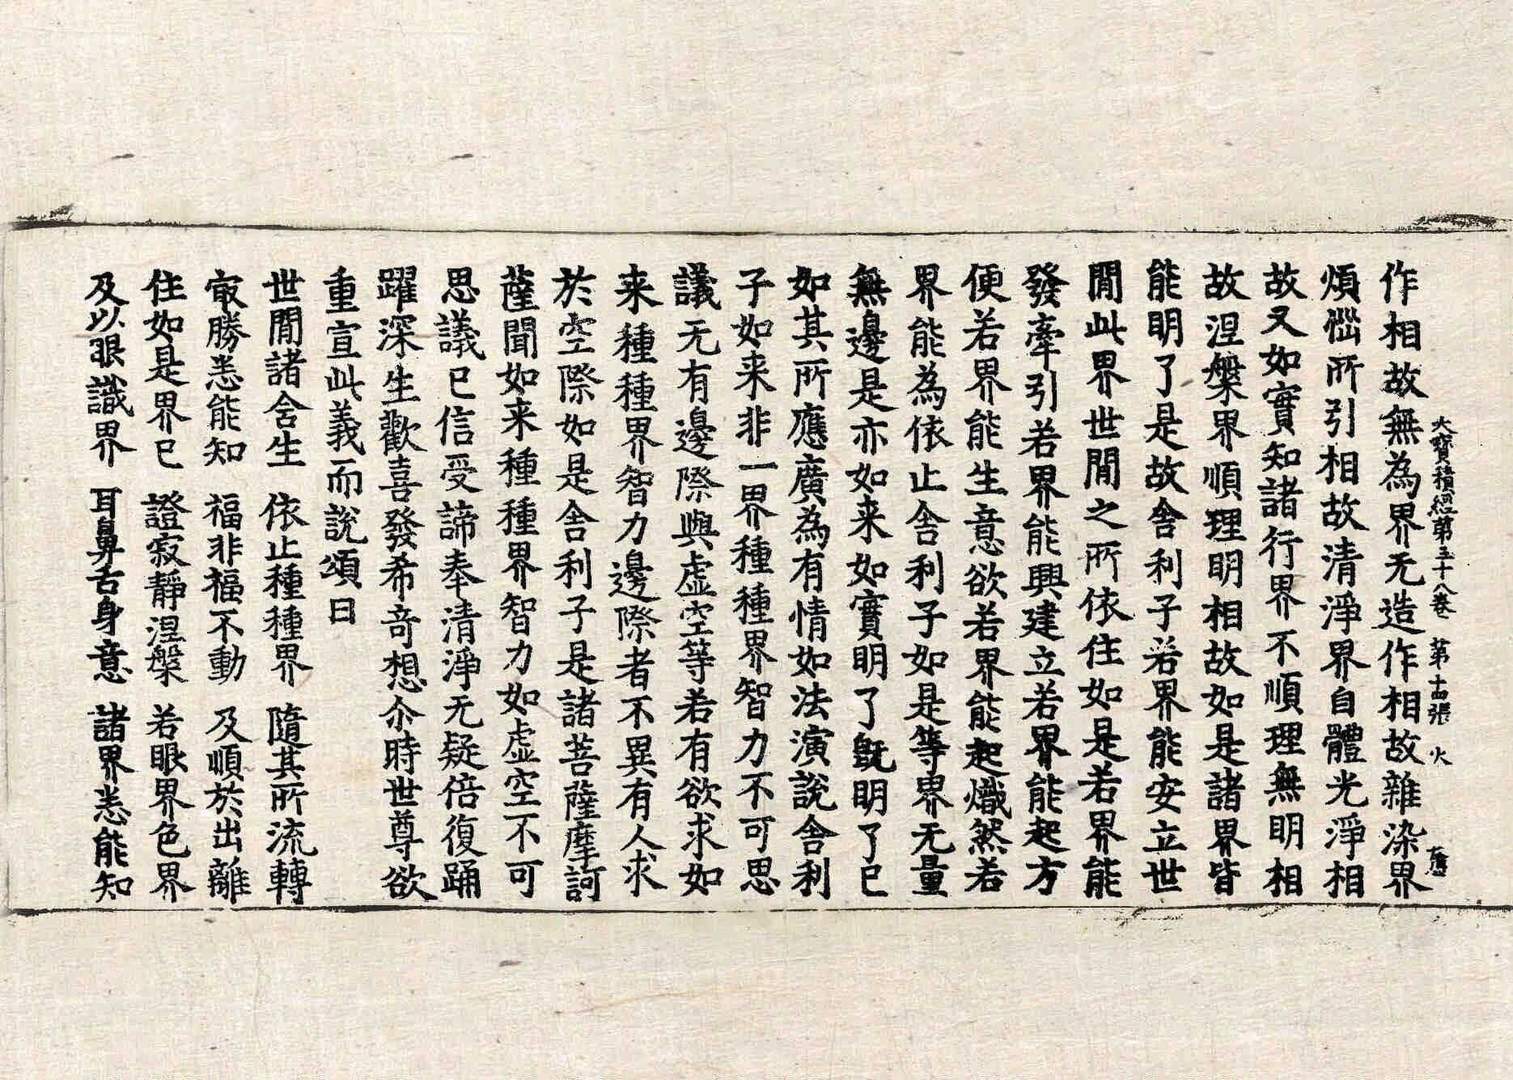 大寶積經第五十八卷 第十四張 火
作相故無為界无造作相故雜染界
煩惱所引相故清淨界自體光淨相
故又如實知諸行界不順理無明相
故涅槃界順理明相故如是諸界皆
能明了是故舍利子若界能安立世
閒此界世閒之所依住如是若界能
發牽引若界能興建立若界能起方
便若界能生意欲若界能起熾然若
界能為依止舍利子如是等界无量
無邊是亦如来如實明了既明了已
如其所應廣為有情如法演說舍利
子如来非一界種種界智力不可思
議无有邊際與虛空等若有欲求如
来種種界智力邊際者不異有人求
於空際如是舍利子是諸菩薩摩訶
薩聞如来種種界智力如虛空不可
思議已信受諦奉清淨无疑倍復踊
躍深生歡喜發希奇想尒時世尊欲
重宣此義而說頌曰
世閒諸含生 依止種種界 隨其所流轉
㝡勝悉能知 福非福不動 及順於出離
住如是界已 證寂靜涅槃 若眼界色界
及以眼識界 耳鼻舌身意 諸界悉能知